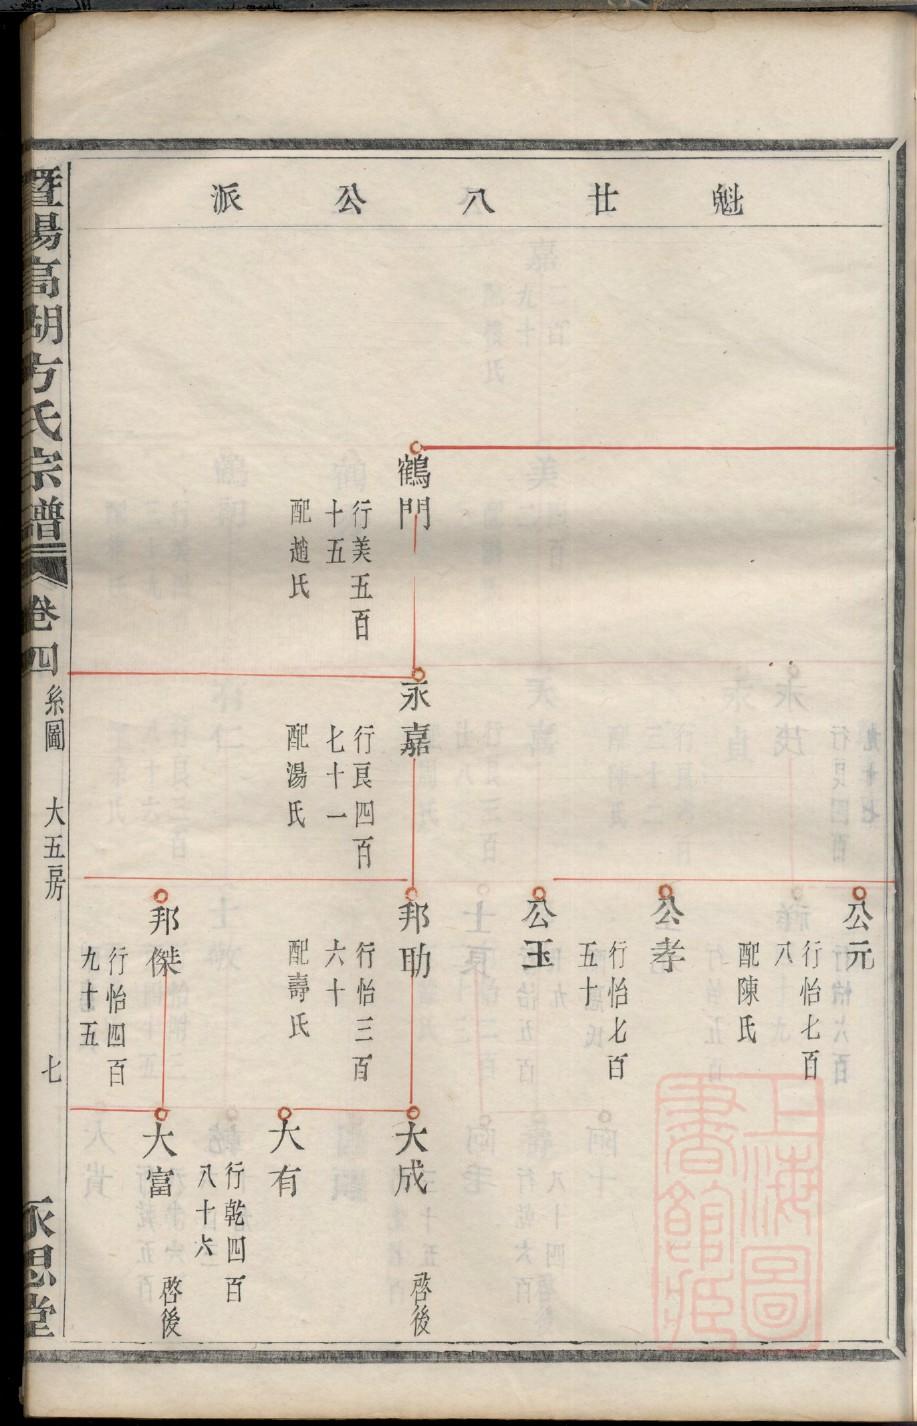 魁廿八公派
鶴門
行美五百
十五
配趙氏
永嘉
行良四百
七十一
配湯氏
公元
行怡七百
八
配陳氏
公孝
行怡七百
五十
公玉
邦助
行怡三百
六十
配壽氏
邦傑
行怡四百
九十五
大成
啓後
大有
行乾四百
八十六
大富
啓後
暨陽高湖方氏宗譜
卷四
系圖
大五房
七
永思堂
上海圖
書館藏